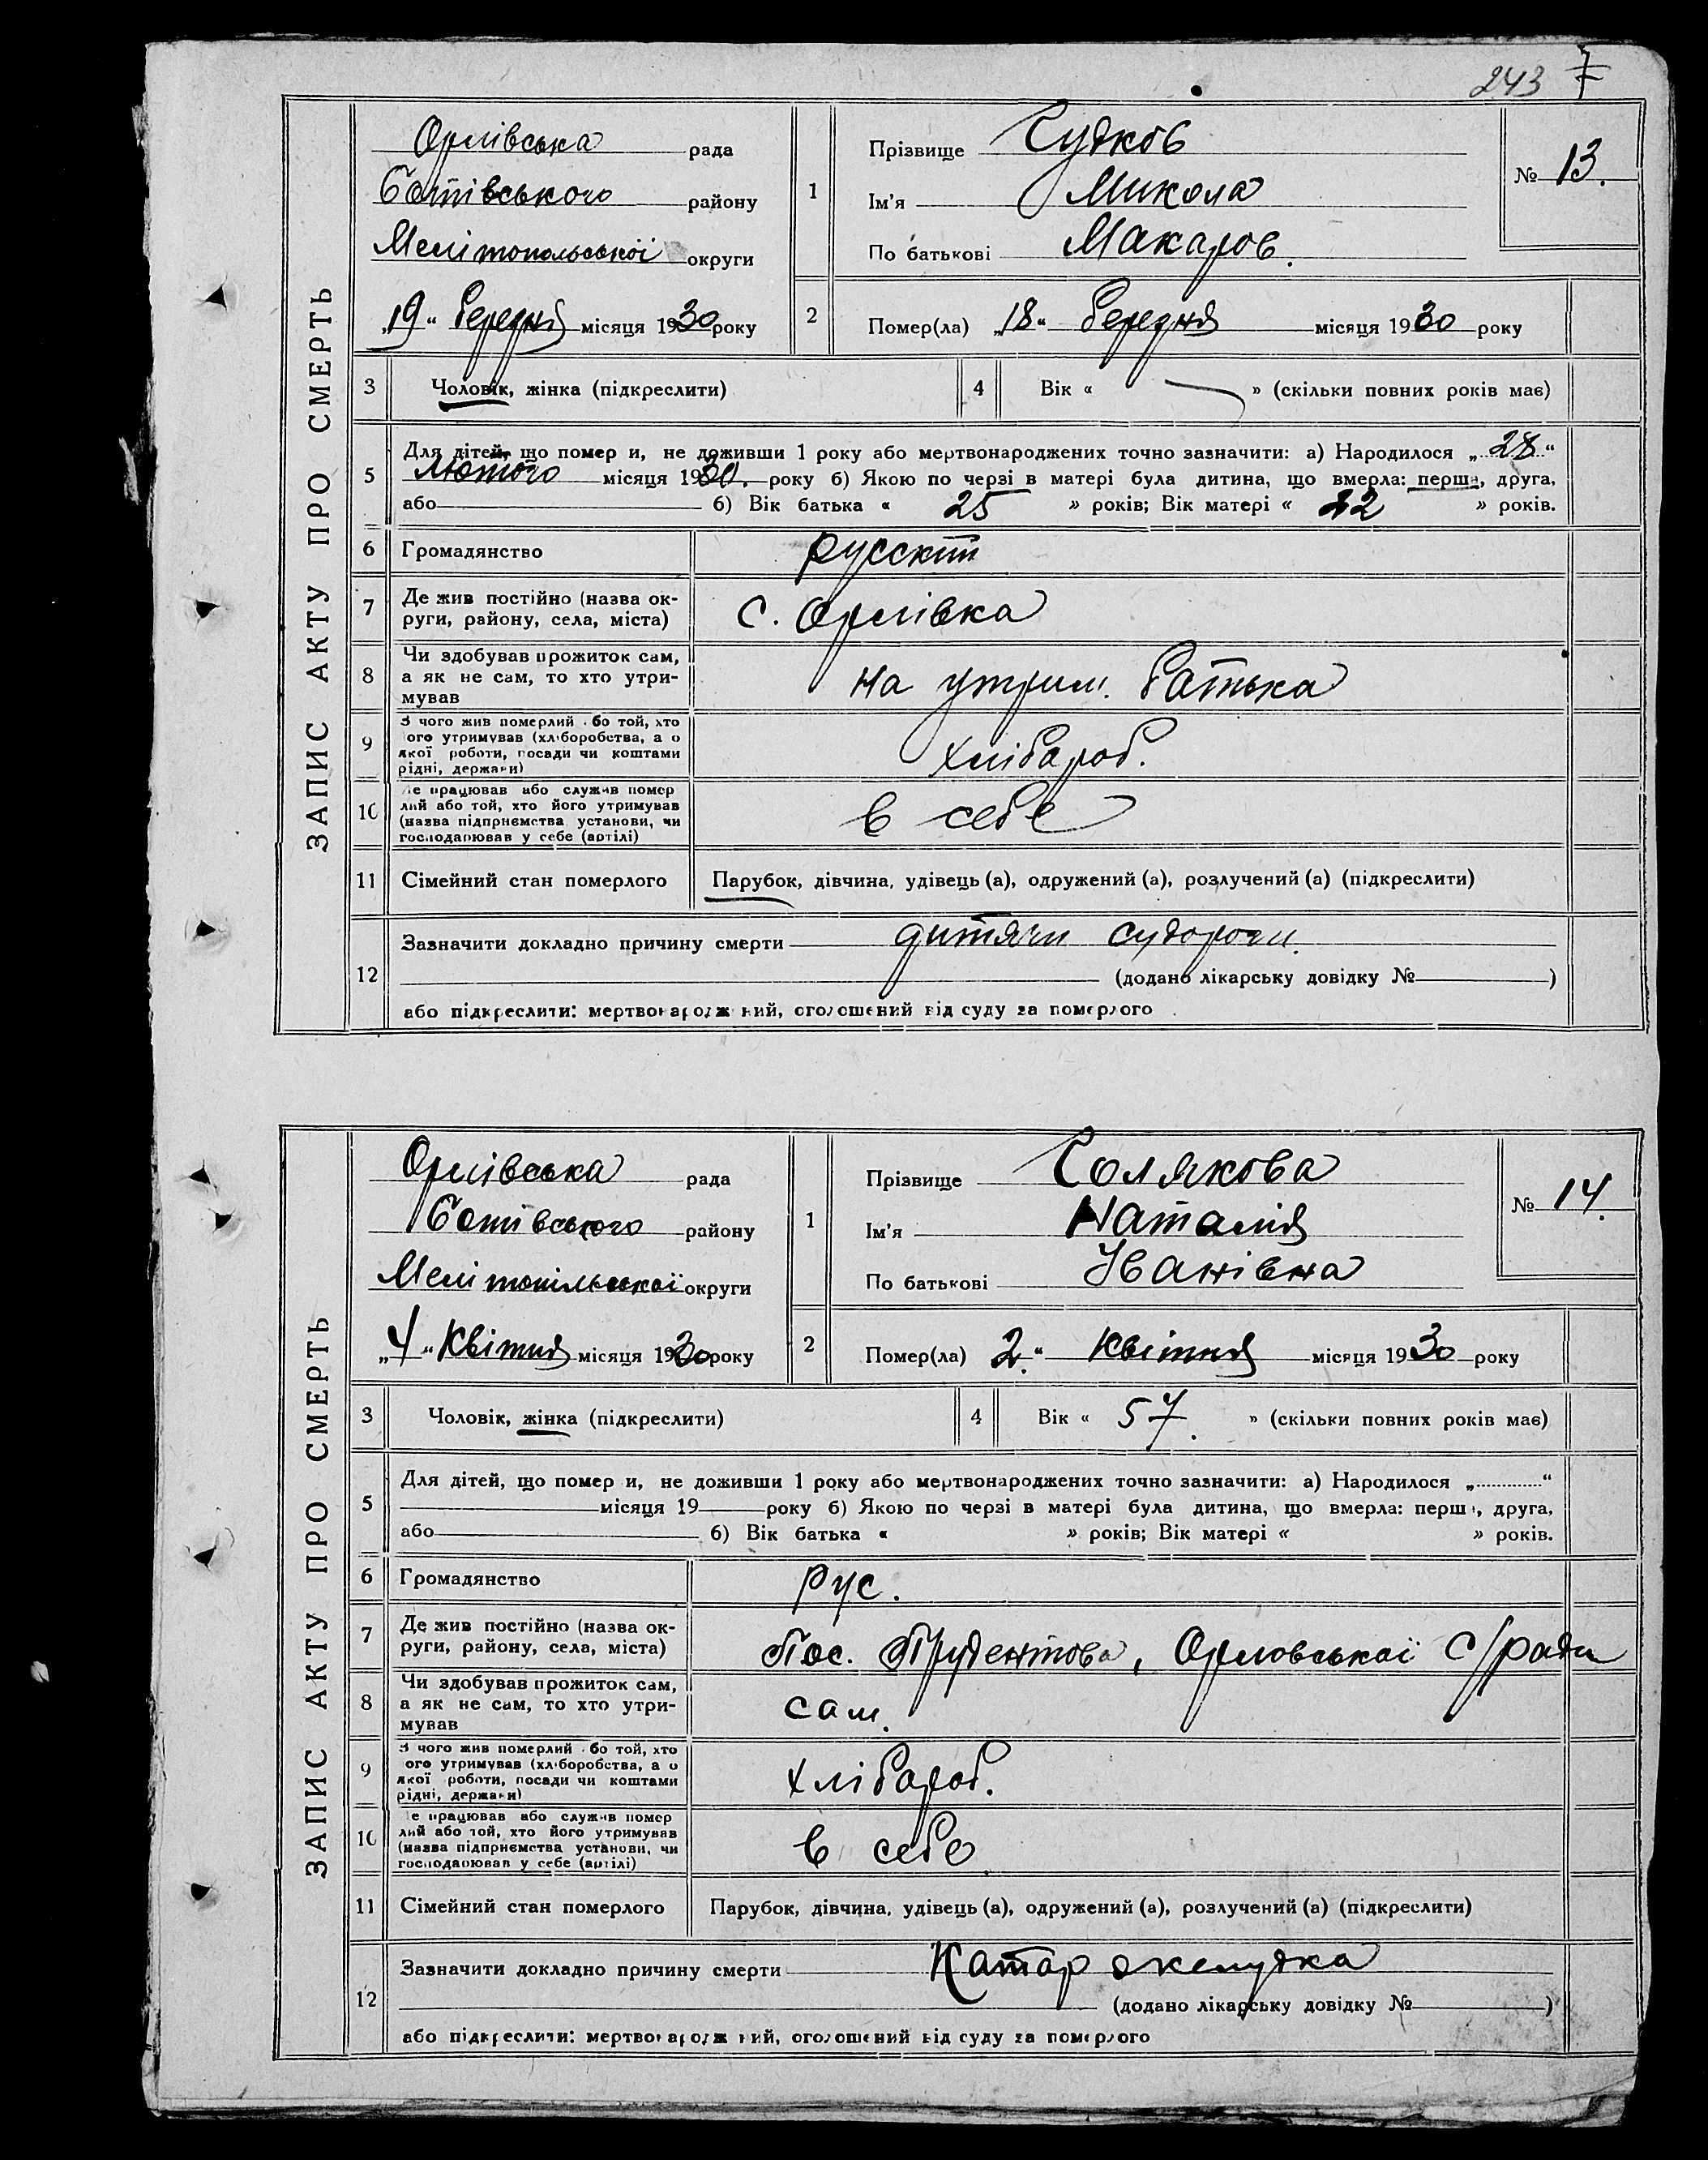 243 7
ЗАПИС АКТУ ПРО СМЕРТЬ
Орлівська рада
Ботівського району
Мелітопольської округи
„19“ березня місяця 1930 року
1
Прізвище Судков
Ім'я Микола
По батькові Макаров.
№ 13.
2
Помер(ла) „18“ березня місяця 1930 року
3 Чоловік, жінка (підкреслити)
4 Вік « » (скільки повних років має)
5 Для дітей, що помер и, не доживши 1 року або мертвонароджених точно зазначити: а) Народилося „28“
лютого місяця 1930. року б) Якою по черзі в матері була дитина, що вмерла: перша, друга,
або б) Вік батька « 25 » років; Вік матері « 22 » років.
6 Громадянство русский
7 Де жив постійно (назва ок-
руги, району, села, міста)
с. Орлівка
8 Чи здобував прожиток сам,
а як не сам, то хто утри-
мував
на утрим. батька
9 З чого жив померлий бо той, хто
ого утримував (хліборобства, а о
якої роботи, посади чи коштами
рідні, держави)
хлібороб.
10 Де працював або служив помер
лий або той, хто його утримував
(назва підприємства установи, чи
господарював у себе (артілі)
в себе
11 Сімейний стан померлого Парубок, дівчина, удівець (а), одружений (а), розлучений (а) (підкреслити)
12 Зазначити докладно причину смерти дитячи судороги.
(додано лікарську довідку № )
або підкреслити: мертвонароджений, оголошений від суду за померлого
ЗАПИС АКТУ ПРО СМЕРТЬ
Орлівська рада
Ботівського району
Мелітопільської округи
„4“ Квітня місяця 1930 року
1
Прізвище Солякова
Ім'я Наталія
По батькові Іванівна
№ 14.
2
Помер(ла) 2.“ Квітня місяця 1930 року
3 Чоловік, жінка (підкреслити)
4 Вік « 57. » (скільки повних років має)
5 Для дітей, що помер и, не доживши 1 року або мертвонароджених точно зазначити: а) Народилося „ “
місяця 19 року б) Якою по черзі в матері була дитина, що вмерла: перш, друга,
або б) Вік батька « » років; Вік матері « » років.
6 Громадянство рус.
7 Де жив постійно (назва ок-
руги, району, села, міста)
Пос. Прудентова, Орловськаї с/ради
8 Чи здобував прожиток сам,
а як не сам, то хто утри-
мував
сам.
9 З чого жив померлий бо той, хто
ого утримував (хліборобства, а о
якої роботи, посади чи коштами
рідні, держави)
хлібароб.
10 е працював або служив помер
лий або той, хто його утримував
(назва підприємства установи, чи
господарював у себе (артілі)
в себе
11 Сімейний стан померлого Парубок, дівчина, удівець (а), одружений (а), розлучений (а) (підкреслити)
12 Зазначити докладно причину смерти Катар желудка
(додано лікарську довідку № )
або підкреслити: мертвонароджений, оголошений від суду за померлого